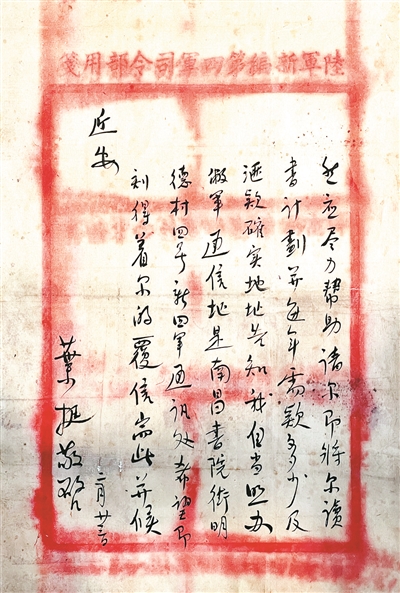 陸軍新編第四軍司令部用箋
应尽力幫助請尔即將尔讀
書計劃并每年需款多少及
滙款確实地址告知我自当照办
敝軍通信地是南昌書院街明
德村四号新四軍通訊处希望即
刻得着尔的覆信耑此并候
近安
葉挺敬啓
二月廿三日